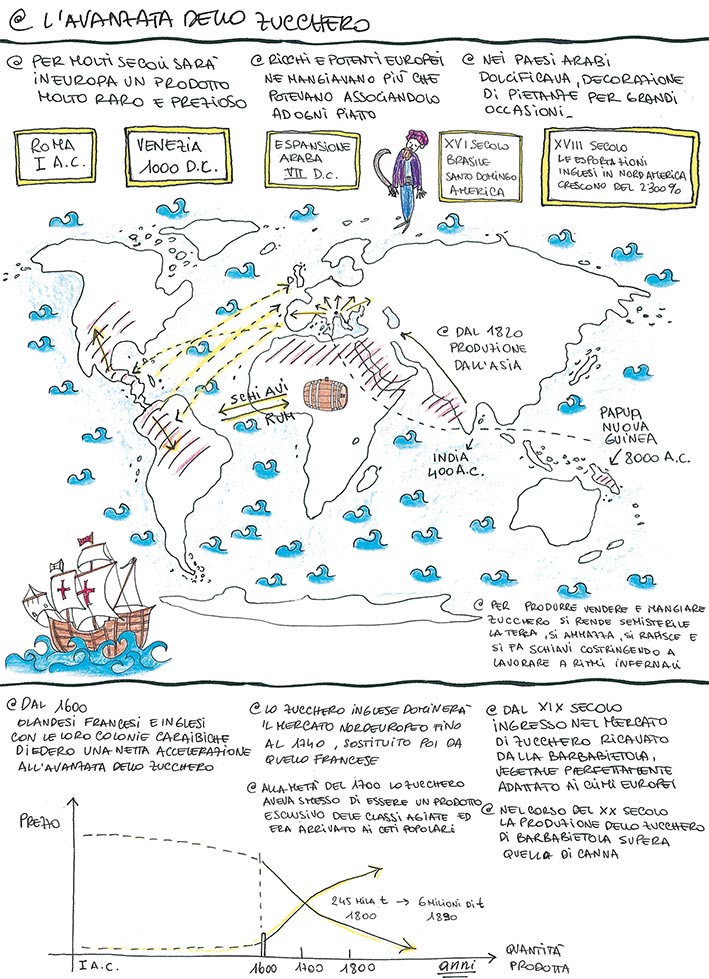 @ L'AVANZATA DELLO ZUCCHERO
@ PER MOLTI SECOLI SARÀ
IN EUROPA UN PRODOTTO
MOLTO RARO E PREZIOSO
@ RICCHI E POTENTI EUROPEI
NE MANGIAVANO PIÙ CHE
POTEVANO ASSOCIANDOLO
AD OGNI PIATTO
@ NEI PAESI ARABI
DOLCIFICAVA, DECORAZIONE
DI PIETANZE PER GRANDI
OCCASIONI_
ROMA
I A.C.
VENEZIA
1000 D.C.
ESPANSIONE
ARABA
VII D.C.
XVI SECOLO
BRASILE
SANTO DOMINGO
AMERICA
XVIII SECOLO
LE ESPORTAZIONI
INGLESI IN NORD AMERICA
CRESCONO DEL 2300%
@ DAL 1820
PRODUZIONE
DALL'ASIA
SCHIAVI
RUM
INDIA
400 A.C.
PAPUA
NUOVA
GUINEA
8000 A.C.
@ PER PRODURRE VENDERE E MANGIARE
ZUCCHERO SI RENDE SEMISTERILE
LA TERRA, SI AMMAZZA, SI RAPISCE E
SI FA SCHIAVI COSTRINGENDO A
LAVORARE A RITMI INFERNALI
@ DAL 1600
OLANDESI FRANCESI E INGLESI
CON LE LORO COLONIE CARAIBICHE
DIEDERO UNA NETTA ACCELERAZIONE
ALL'AVANZATA DELLO ZUCCHERO
@ LO ZUCCHERO INGLESE DOMINERÀ
IL MERCATO NORDEUROPEO FINO
AL 1740, SOSTITUITO POI DA
QUELLO FRANCESE
@ ALLA METÀ DEL 1700 LO ZUCCHERO
AVEVA SMESSO DI ESSERE UN PRODOTTO
ESCLUSIVO DELE CLASSI AGIATE ED
ERA ARRIVATO AI CETI POPOLARI
@ DAL XIX SECOLO
INGRESSO NEL MERCATO
DI ZUCCHERO RICAVATO
DALLA BARBABIETOLA,
VEGETALE PERFETTAMENTE
ADATTATO AI CLIMI EUROPEI
@ NEL CORSO DEL XX SECOLO
LA PRODUZIONE DELLO ZUCCHERO
DI BARBABIETOLA SUPERA
QUELLA DI CANNA
PREZZO
245 MILA t → 6 MILIONI DI t
1800 1890
I A.C.
1600 1700 1800 anni
QUANTITÀ
PRODOTTA